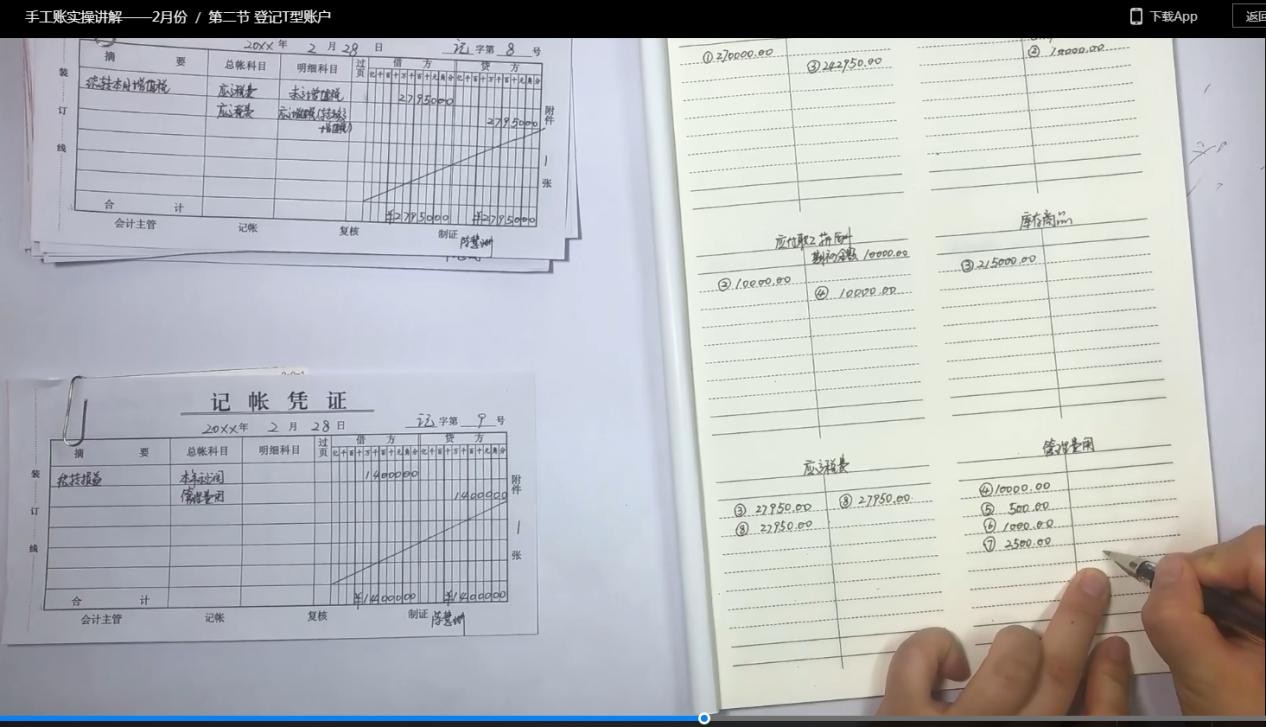 手工账实操讲解——2月份 / 第二节 登记T型账户
下载App
返回
20XX年 2月28日 记字第 8 号
摘要 总帐科目 明细科目 过页 借方 贷方
亿千百十万千百十元角分 亿千百十万千百十元角分
结转本月增值税 应交税费 未交增值税 2795000
应交税费 应交增值税(转出未交增值税) 2795000
合计 ¥2795000 ¥2795000
附件 1 张
装订线
会计主管 记帐 复核 制证
记帐凭证
20XX年 2月28日 记字第 9 号
摘要 总帐科目 明细科目 过页 借方 贷方
亿千百十万千百十元角分 亿千百十万千百十元角分
结转损益 本年利润 1400000
管理费用 1400000
合计 ¥1400000 ¥1400000
附件 1 张
装订线
会计主管 记帐 复核 制证
①270000.00 ③242950.00
② 10000.00
应付职工薪酬
期初余额 10000.00
②10000.00
④ 10000.00
库存商品
③215000.00
应交税费
③ 27950.00 ⑧ 27950.00
⑧ 27950.00
管理费用
④10000.00
⑤ 500.00
⑥ 1000.00
⑦ 2500.00